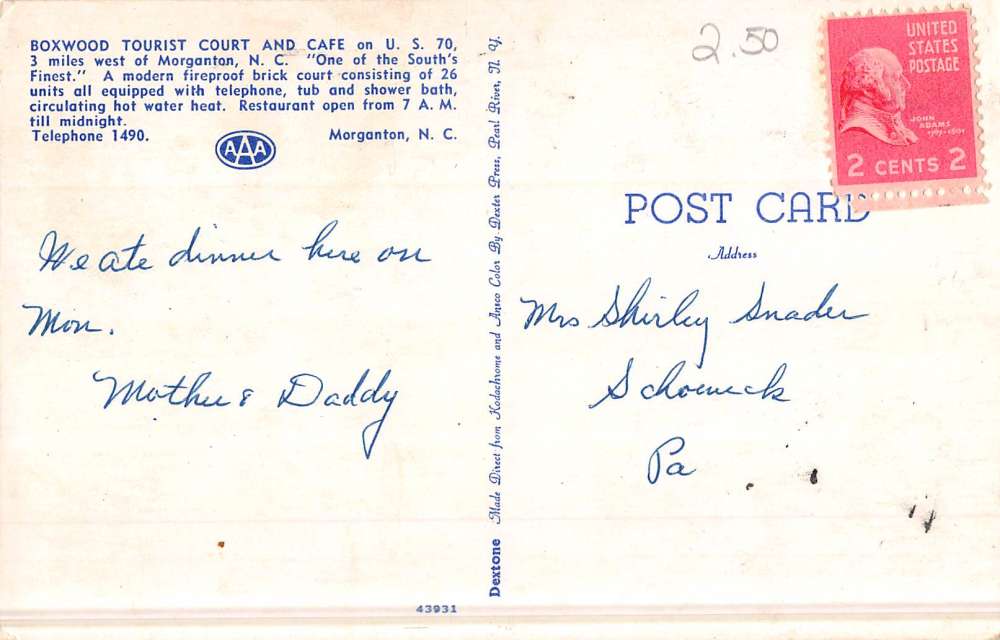 BOXWOOD TOURIST COURT AND CAFE on U. S. 70,
3 miles west of Morganton, N. C. "One of the South's
Finest." A modern fireproof brick court consisting of 26
units all equipped with telephone, tub and shower bath,
circulating hot water heat. Restaurant open from 7 A. M.
till midnight.
Telephone 1490.
AAA
Morganton, N. C.
We ate dinner here on
Mon.
Mother & Daddy
43931
Dextone Made Direct from Kodachrome and Ansco Color By Dexter Press, Pearl River, N. Y.
2.50
UNITED
STATES
POSTAGE
JOHN
ADAMS
1797-1801
2 CENTS 2
POST CARD
Address
Mrs Shirley Snader
Schoeneck
Pa